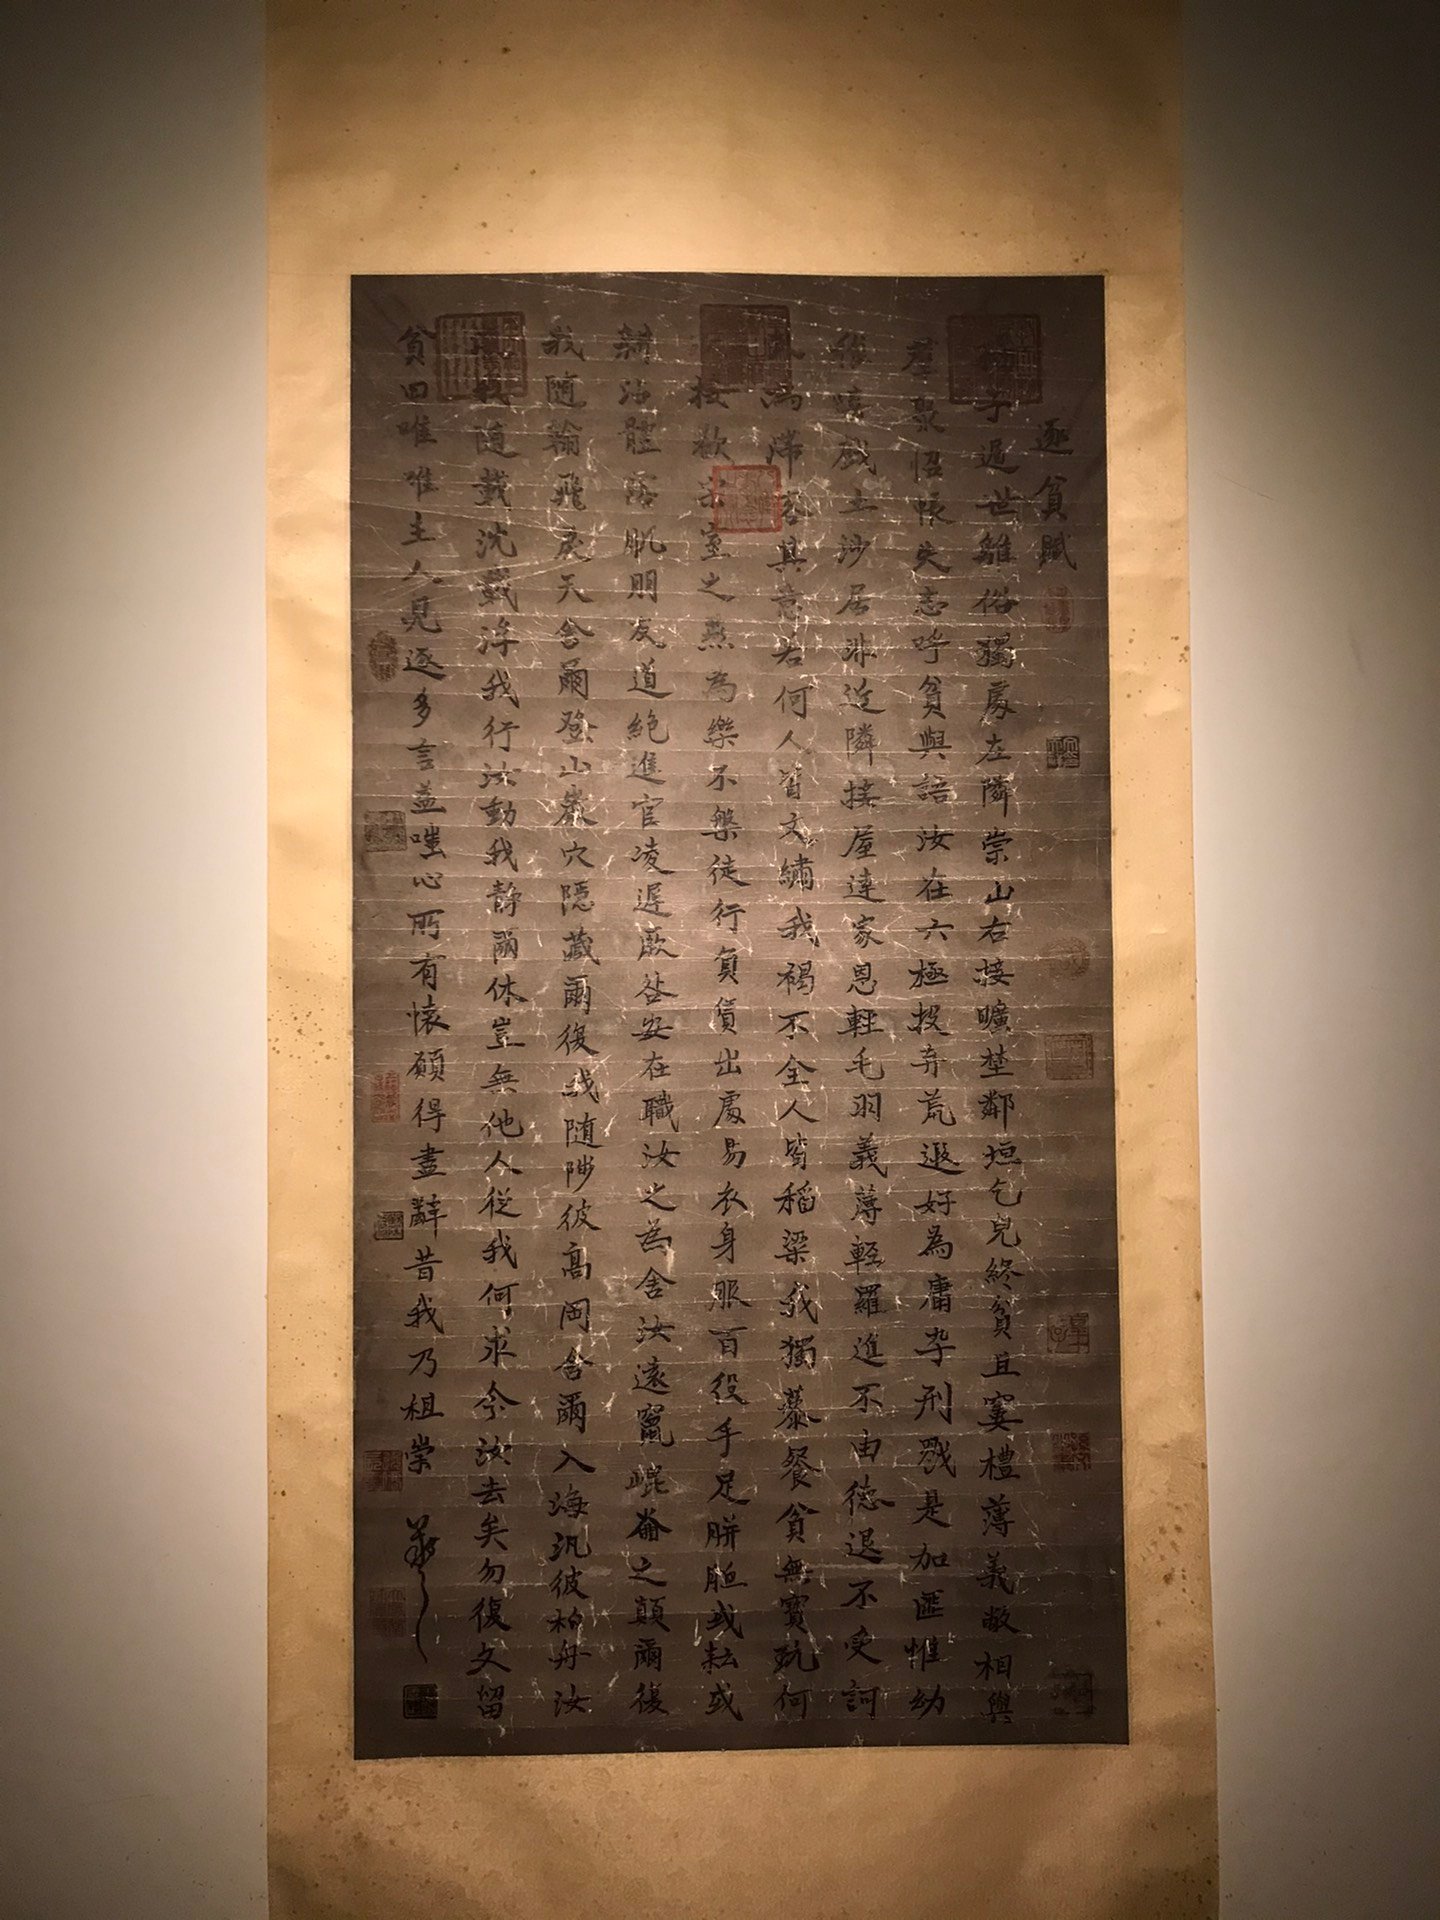 逐貧賦
子遁世離俗獨處左隣崇山右接曠埜鄰垣乞兒終貧且窶禮薄義敝相與
羣聚惆悵失志呼貧與語汝在六極投弃荒遐好為庸卒刑戮是加匪惟幼
稚嬉戲土沙居非近隣接屋連家恩輕毛羽義薄輕羅進不由德退不受訶
為滯客其意若何人皆文繡我褐不全人皆稻粱我獨藜餐貧無寶玩何
接歡宗室之燕為樂不槃徒行負賃出處易衣身服百役手足胼胝或耘或
耕沾體露肌朋友道絕進官凌遲厥咎安在職汝之為舍汝遠竄崐崙之顛爾復
我隨翰飛戾天舍爾登山巖穴隱藏爾復我随陟彼高岡舍爾入海汎彼柏舟汝
我隨載沈載浮我行汝動我靜爾休豈無他人從我何求今汝去矣勿復久留
貧曰唯唯主人見逐多言益嗤心所有懷願得盡辭昔我乃祖崇